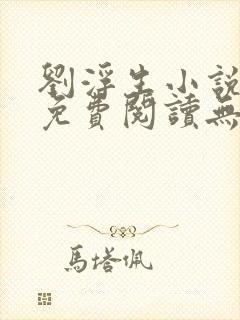 劉浮生小說
免費閱讀無
馬塔佩